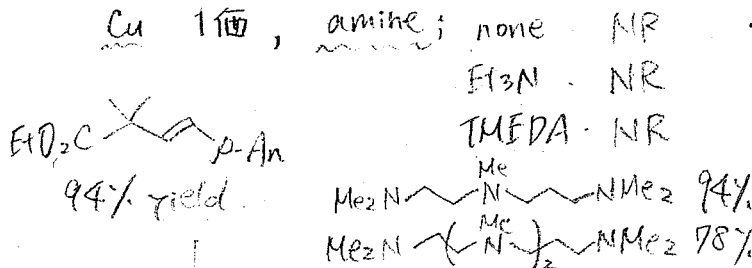 Cu 1価, amine; none NR
Et3N NR
TMEDA NR
EtO2C p-An
94% yield
Me2N N Me NMe2 94%
Me2N ( N Me )2 NMe2 78%